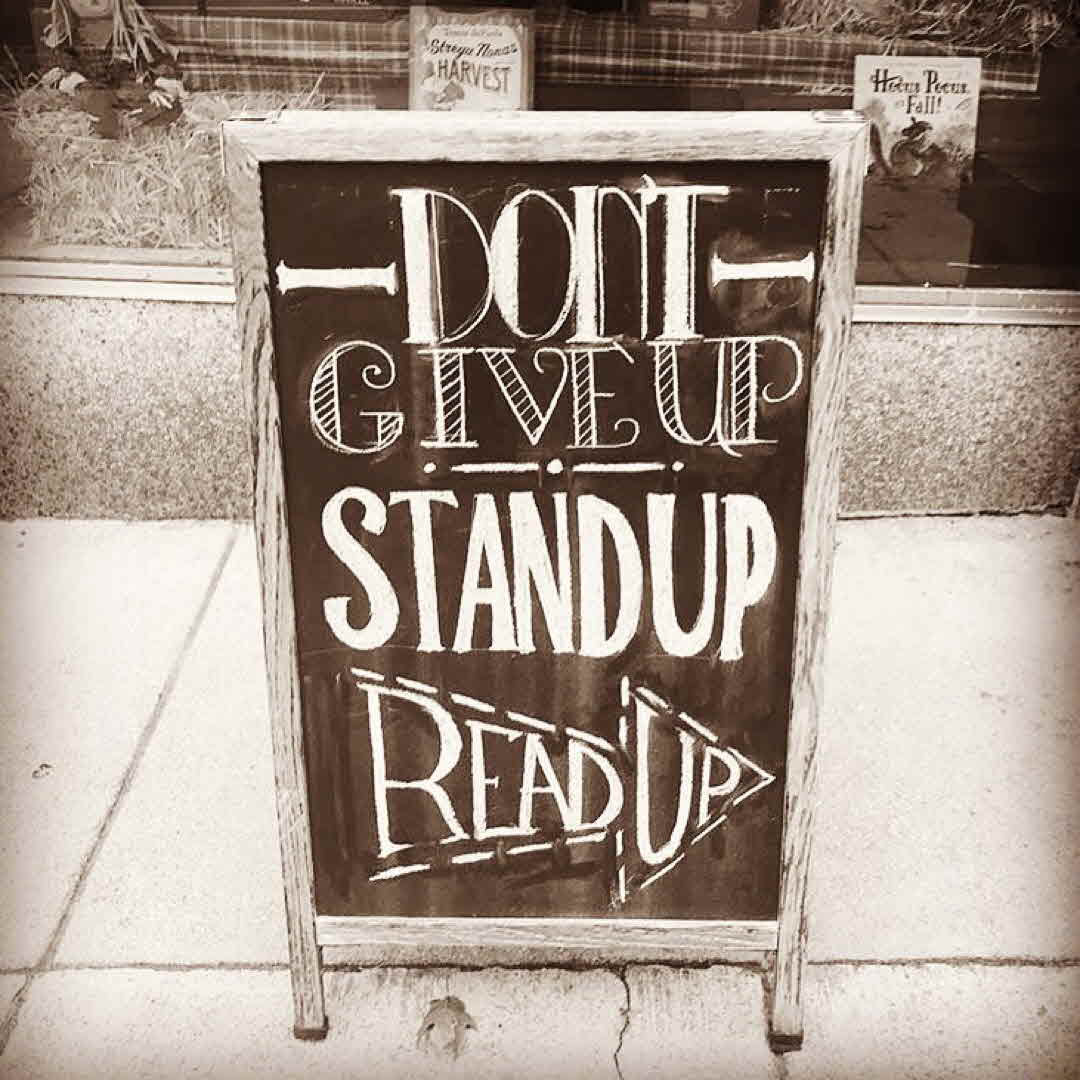 Tomie dePaola
Strega Nona's
HARVEST
Hocus Pocus,
It's Fall!
DON'T
GIVE UP
STAND UP
READ UP